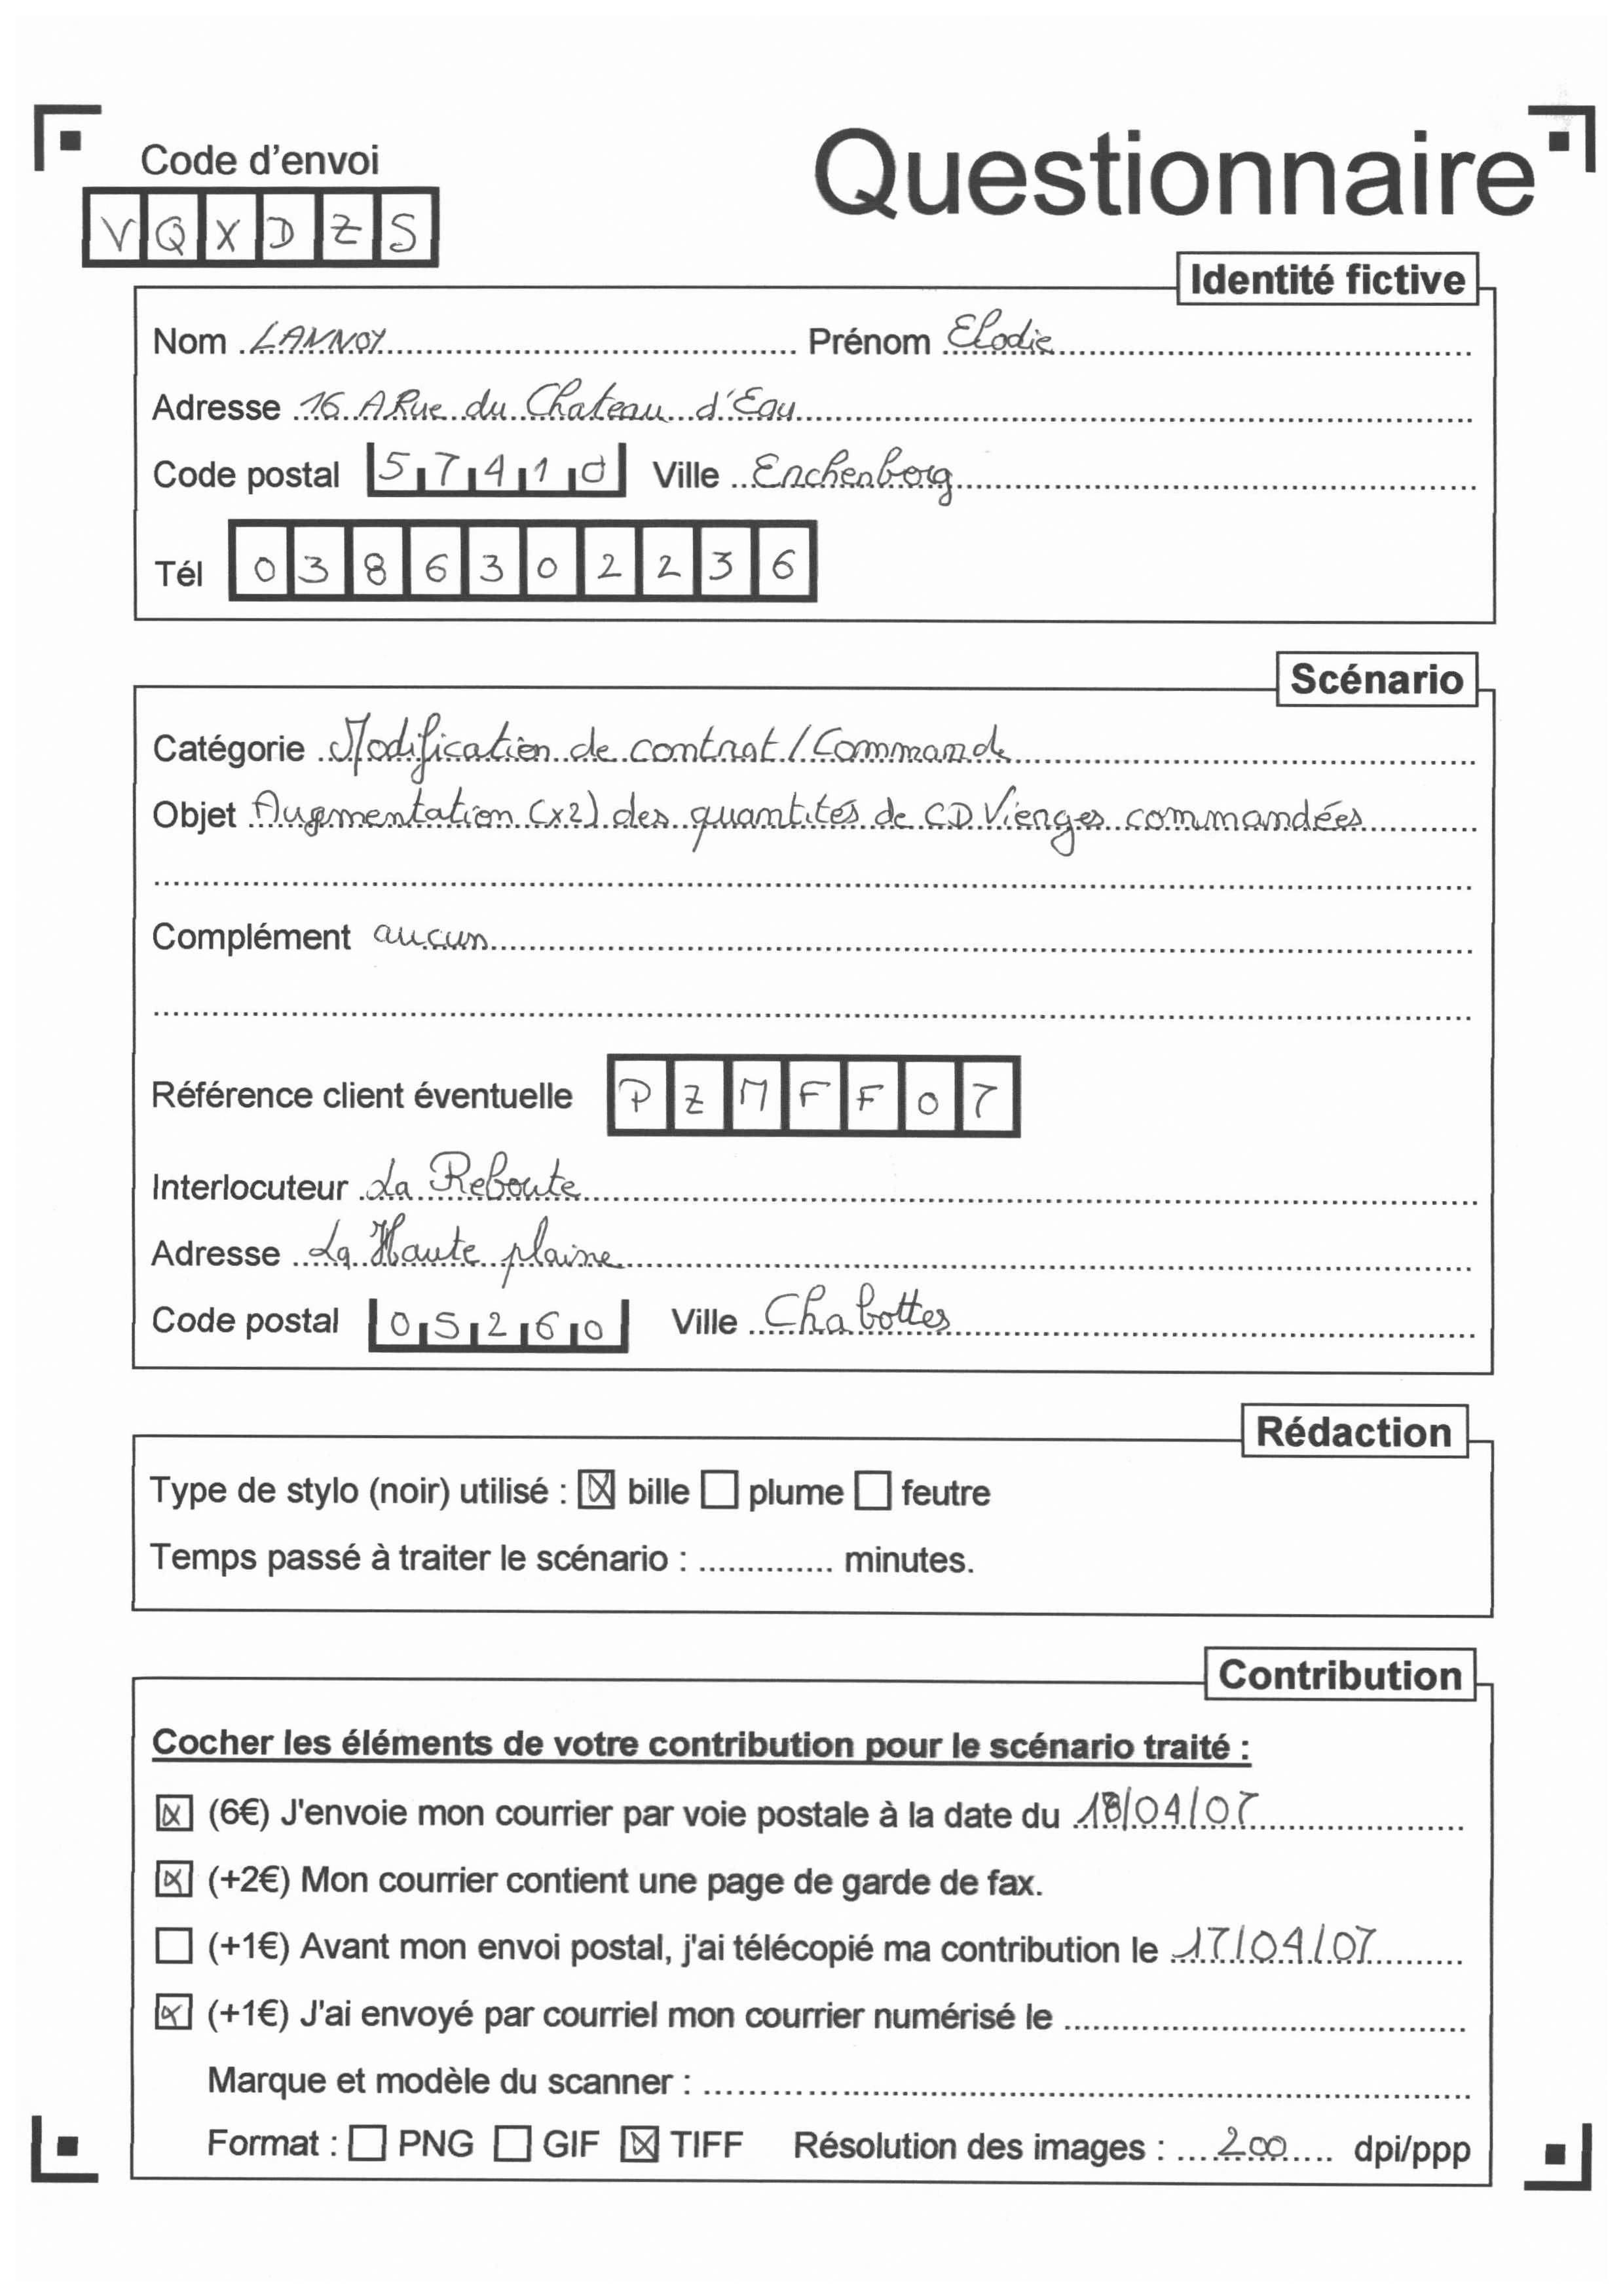 Code d'envoi
Questionnaire
V Q X D Z S
Identité fictive
Nom LANNOY Prénom Elodie
Adresse 16 A Rue du Chateau d'Eau
Code postal 57410 Ville Enchenberg
Tél 0386302236
Scénario
Catégorie Modification de contrat / Commande
Objet Augmentation (x2) des quantités de CD Vierges commandées
Complément aucun
Référence client éventuelle PZMFF07
Interlocuteur La Reboute
Adresse La Haute plaine
Code postal 05260 Ville Chabottes
Rédaction
Type de stylo (noir) utilisé : ☒ bille ☐ plume ☐ feutre
Temps passé à traiter le scénario : ............. minutes.
Contribution
Cocher les éléments de votre contribution pour le scénario traité :
☒ (6€) J'envoie mon courrier par voie postale à la date du 18/04/07
☒ (+2€) Mon courrier contient une page de garde de fax.
☐ (+1€) Avant mon envoi postal, j'ai télécopié ma contribution le 17/04/07
☒ (+1€) J'ai envoyé par courriel mon courrier numérisé le
Marque et modèle du scanner :
Format : ☐ PNG ☐ GIF ☒ TIFF Résolution des images : 200 dpi/ppp